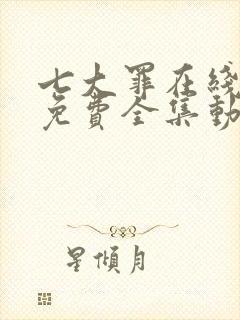 七大罪在线
免費全集動
星傾月